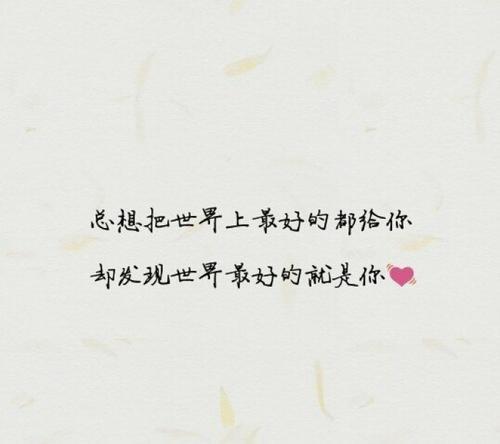 总想把世界上最好的都给你
却发现世界最好的就是你💓